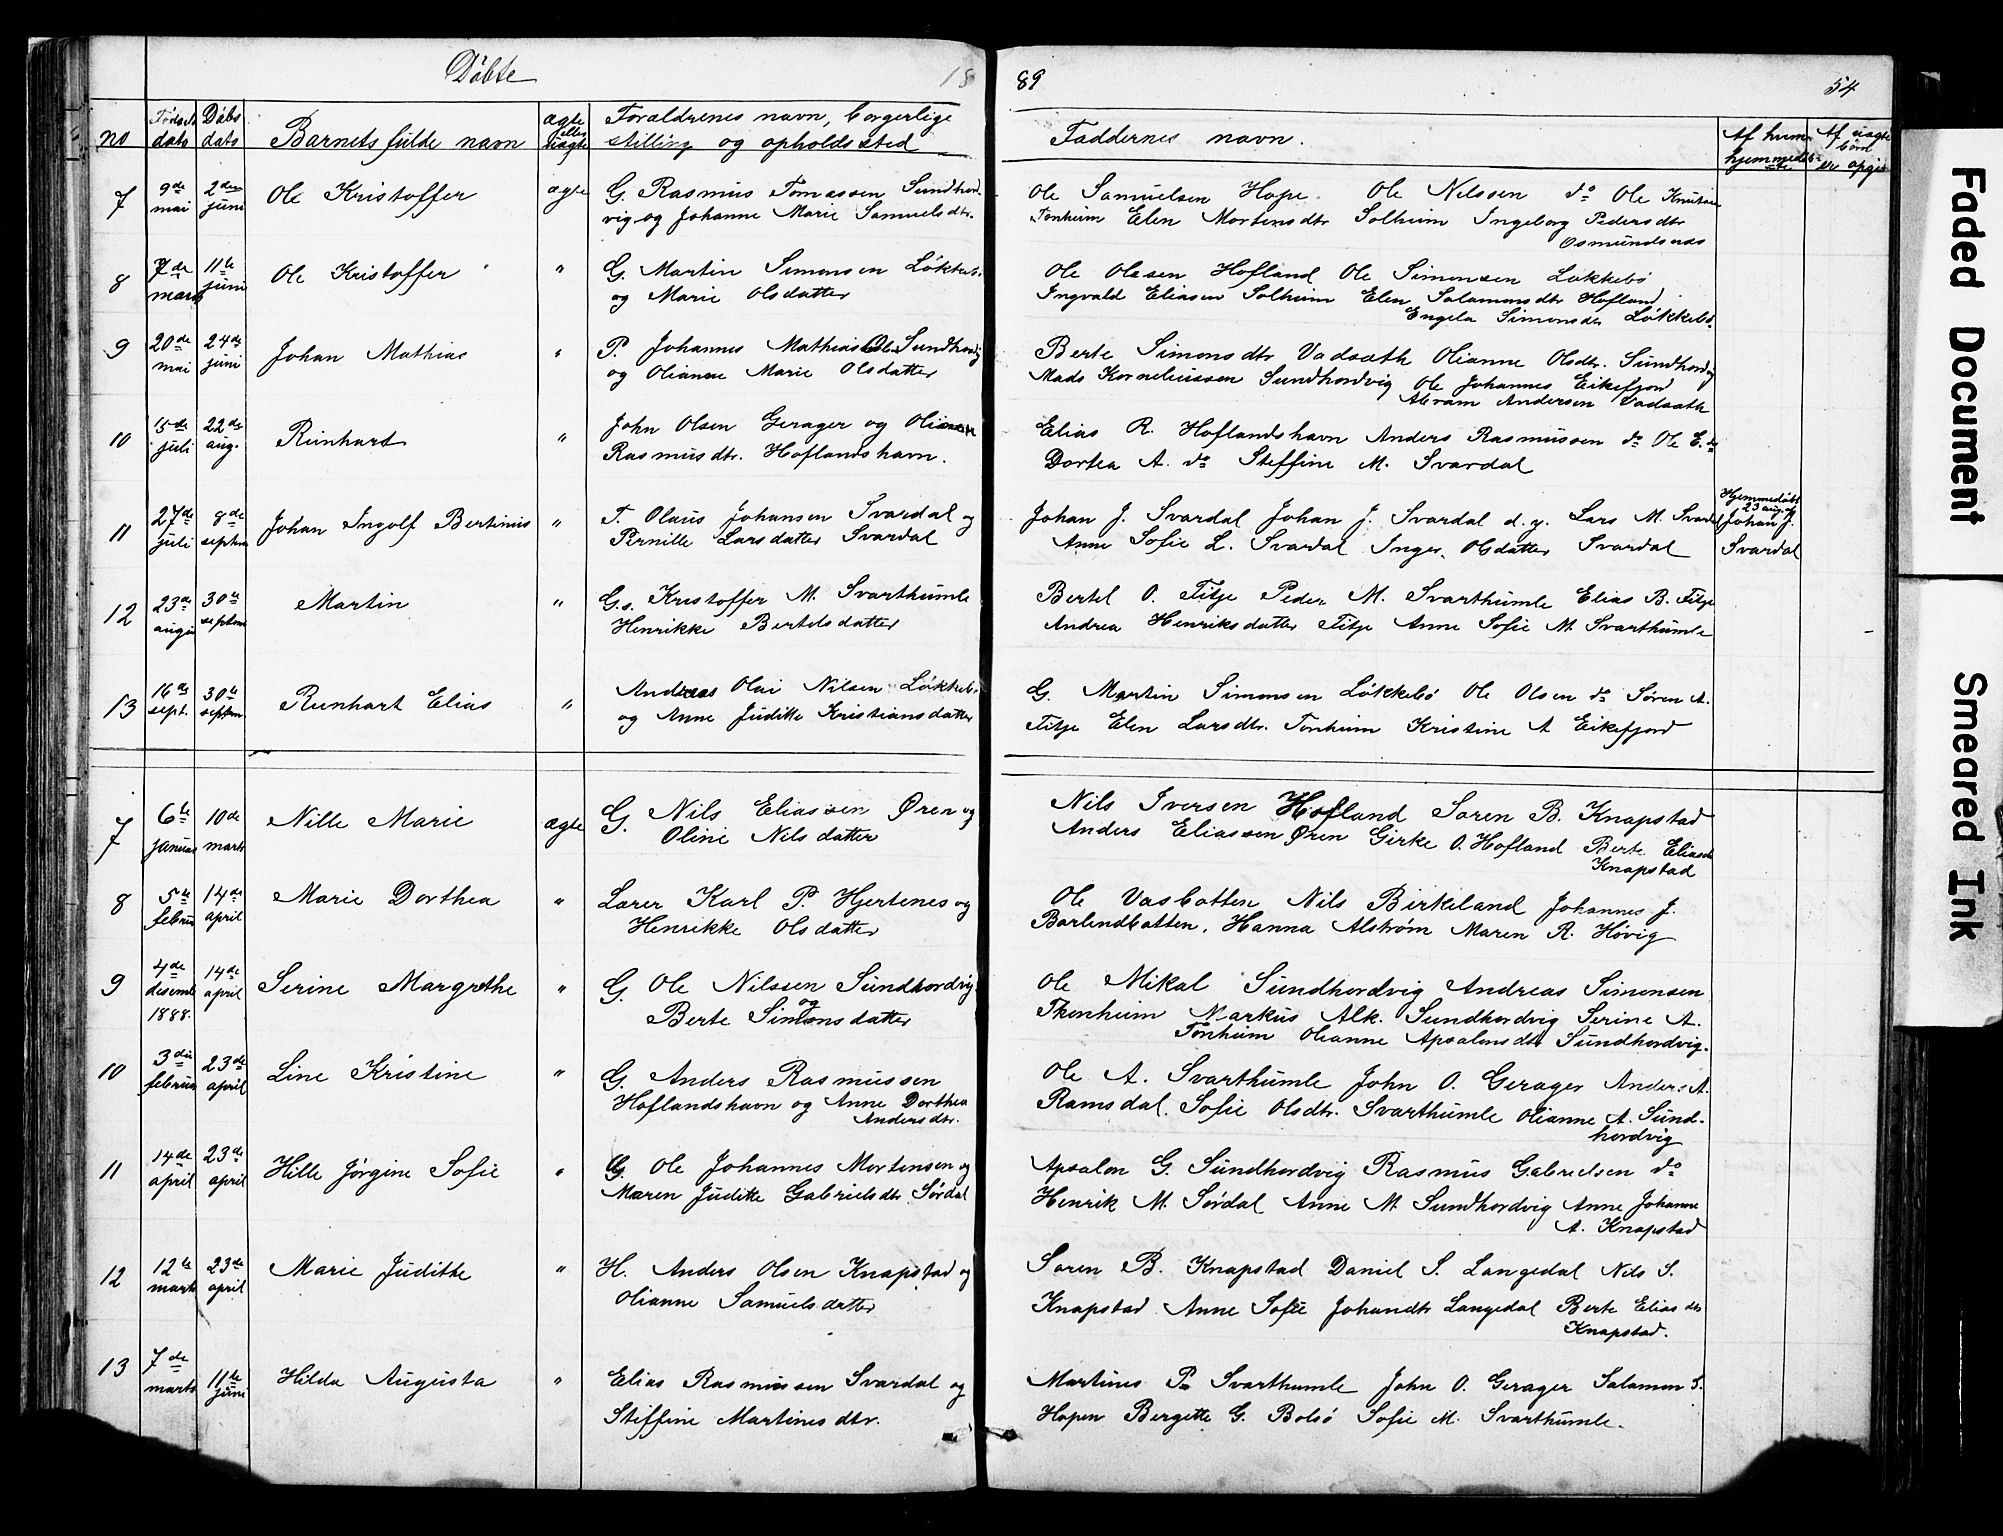 Døbte 18 89 54
no Fødsels dato Døbs dato Barnets fulde navn ægte eller uægte Forældrenes navn, borgerlige stilling og opholdssted Faddernes navn. Af hvem hjemmedøbte Af uægte børn
7 9de mai 2den juni Ole Kristoffer ægte G. Rasmus Tomassen Sundhord-
vig og Johanne Marie Samuelsdtr.
Ole Samuelsen Hope. Ole Nilssen do Ole Knutsen
Tonheim Elen Mortensdtr Solheim Ingeborg Pedersdtr
Osmundsnes
8 7de marts 11te juni Ole Kristoffer " G. Martin Simonsen Løkkebø
og Marie Olsdatter
Ole Olesen Hofland Ole Simonsen Løkkebø
Ingvald Eliasen Solheim Elen Salamonsdtr Hofland
Engela Simonsdtr Løkkebø.
9 20de mai 24de juni Johan Mathias " P. Johannes Mathias Sundhordvig
og Olianne Marie Olsdatter
Berte Simonsdtr Vadsæth Olianne Olsdtr. Sundhordvig
Mads Korneliussen Sundhordvig Ole Johannes Eikefjord
Abram Andersen Vadsæth
10 15de juli 22de aug. Reinhart " John Olsen Gerager og Olianne
Rasmusdtr. Hoflandshavn.
Elias R. Hoflandshavn Anders Rasmussen do Ole E. do
Dortea A. do Steffine M. Svardal
11 27de juli 8de septem Johan Ingolf Bertinius " T. Olaus Johansen Svardal og
Pernille Larsdatter Svardal
Johan J. Svardal Johan J. Svardal d.y. Lars M. Svardal
Anne Sofie L. Svardal Inger Olsdatter Svardal
Hjemmedøbt
23 aug. af
Johan J.
Svardal
12 23de august 30te septem Martin " G.s. Kristoffer M. Svarthumle
Henrikke Bertelsdatter
Bertel O. Titje Peder M. Svarthumle Elias B. Titje
Andrea Henriksdatter Titje Anne Sofie M. Svarthumle
13 16de sept. 30te septem. Reinhart Elias " Andreas Olai Nilsen Løkkebø
og Anne Juditte Kristiansdatter
G. Martin Simonsen Løkkebø Ole Olsen do Søren A.
Titje Elen Larsdtr. Tonheim Kristine A Eikefjord
7 6te januar 10de marts Nille Marie ægte G. Nils Eliassen Øren og
Oline Nilsdatter
Nils Iversen Hofland Søren B. Knapstad
Anders Eliassen Øren Girke O. Hofland Berte Eliasdtr
Knapstad
8 5te februar 14de april Marie Dorthea " Lærer Karl P. Hjertenes og
Henrikke Olsdatter
Ole Vasbotten Nils Birkeland Johannes J.
Barlendbotten. Hanna Alstrøm Maren R. Høvig
9 4de desemb 1888. 14de april Serine Margrethe " G. Ole Nilssen Sundhordvig
og
Berte Simonsdatter
Ole Mikal Sundhordvig Andreas Simonsen
Thenheim Markus Alk. Sundhordvig Serine A.
Tonheim Olianne Apsalonsdtr Sundhordvig.
10 3die februar 23de april Line Kristine " G. Anders Rasmussen
Hoflandshavn og Anne Dorthea
Andersdtr.
Ole A. Svarthumle John O. Gerager Anders A.
Ramsdal. Sofie Olsdtr. Svarthumle Olianne A. Sund-
hordvig
11 14de april 23de april Hille Jørgine Sofie " G. Ole Johannes Mortensen og
Maren Juditte Gabrielsdtr Sørdal
Apsalon G. Sundhordvig Rasmus Gabrielsen do
Henrik M. Sørdal Anne M. Sundhordvig Anne Johanne
A. Knapstad
12 12te marts 23de april Marie Juditte " H. Anders Olsen Knapstad og
Olianne Samuelsdatter
Søren B. Knapstad Daniel S. Langedal Nils S.
Knapstad Anne Sofie Johandtr Langedal Berte Eliasdtr
Knapstad.
13 7de marts 11te juni Hilda Augusta " Elias Rasmussen Svardal og
Steffine Martinesdtr.
Martines P. Svarthumle John O. Gerager Salamon S.
Hopen Bergette G. Bolsø Sofie M. Svarthumle.
Faded Document
Smeared Ink